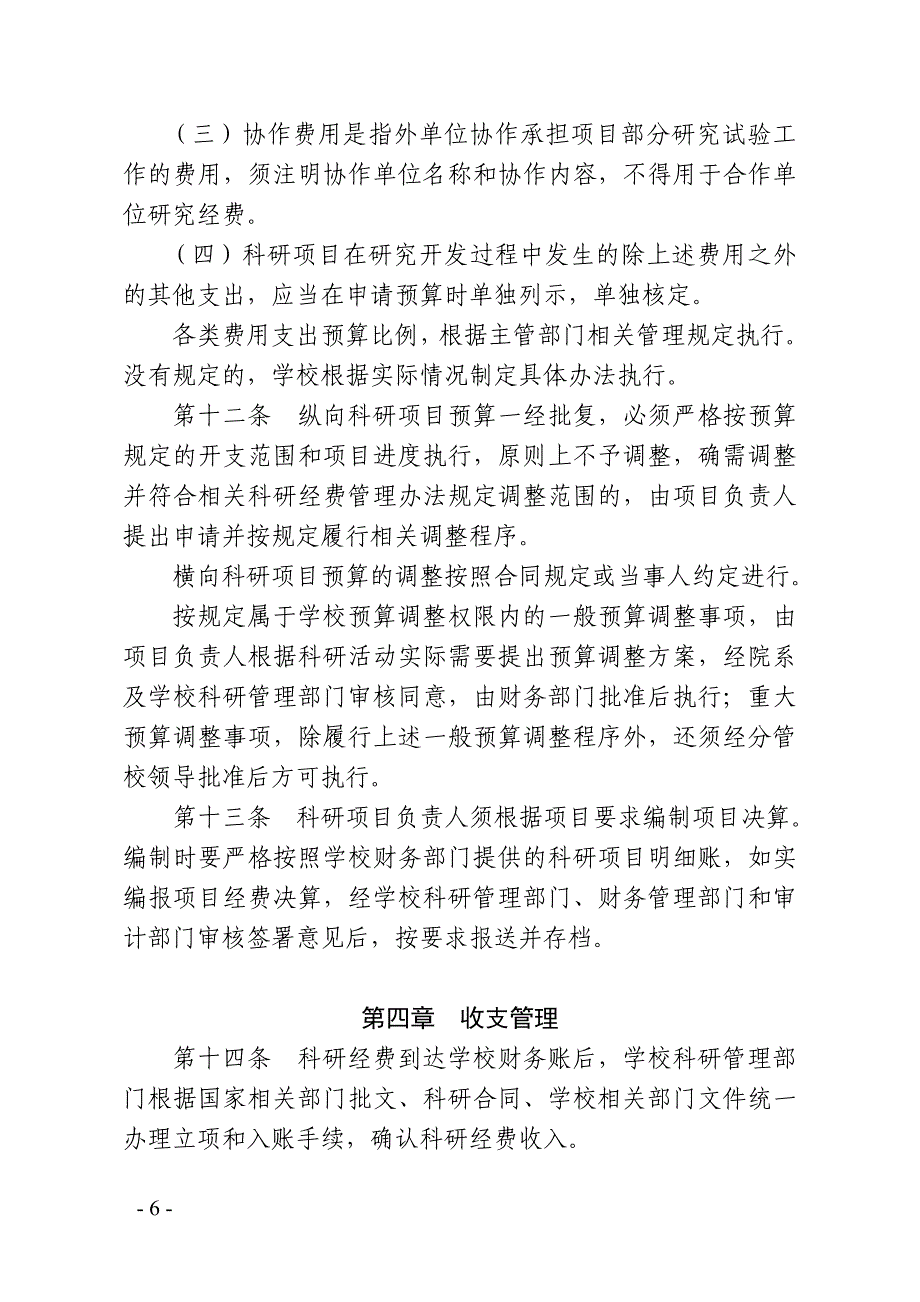 （三）协作费用是指外单位协作承担项目部分研究试验工
作的费用，须注明协作单位名称和协作内容，不得用于合作单
位研究经费。
（四）科研项目在研究开发过程中发生的除上述费用之外
的其他支出，应当在申请预算时单独列示，单独核定。
各类费用支出预算比例，根据主管部门相关管理规定执行。
没有规定的，学校根据实际情况制定具体办法执行。
第十二条　纵向科研项目预算一经批复，必须严格按预算
规定的开支范围和项目进度执行，原则上不予调整，确需调整
并符合相关科研经费管理办法规定调整范围的，由项目负责人
提出申请并按规定履行相关调整程序。
横向科研项目预算的调整按照合同规定或当事人约定进行。
按规定属于学校预算调整权限内的一般预算调整事项，由
项目负责人根据科研活动实际需要提出预算调整方案，经院系
及学校科研管理部门审核同意，由财务部门批准后执行；重大
预算调整事项，除履行上述一般预算调整程序外，还须经分管
校领导批准后方可执行。
第十三条　科研项目负责人须根据项目要求编制项目决算。
编制时要严格按照学校财务部门提供的科研项目明细账，如实
编报项目经费决算，经学校科研管理部门、财务管理部门和审
计部门审核签署意见后，按要求报送并存档。
第四章　收支管理
第十四条　科研经费到达学校财务账后，学校科研管理部
门根据国家相关部门批文、科研合同、学校相关部门文件统一
办理立项和入账手续，确认科研经费收入。
- 6 -